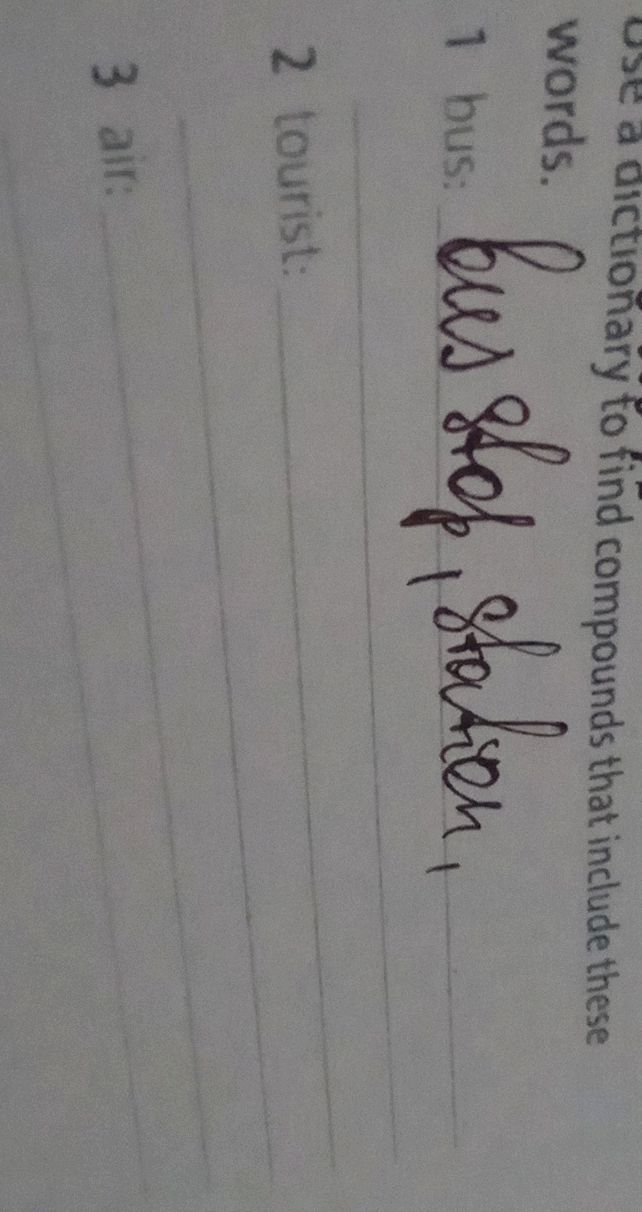 Use a dictionary to find compounds that include these
words.
1 bus: bus stop, station,
2 tourist:
3 air: